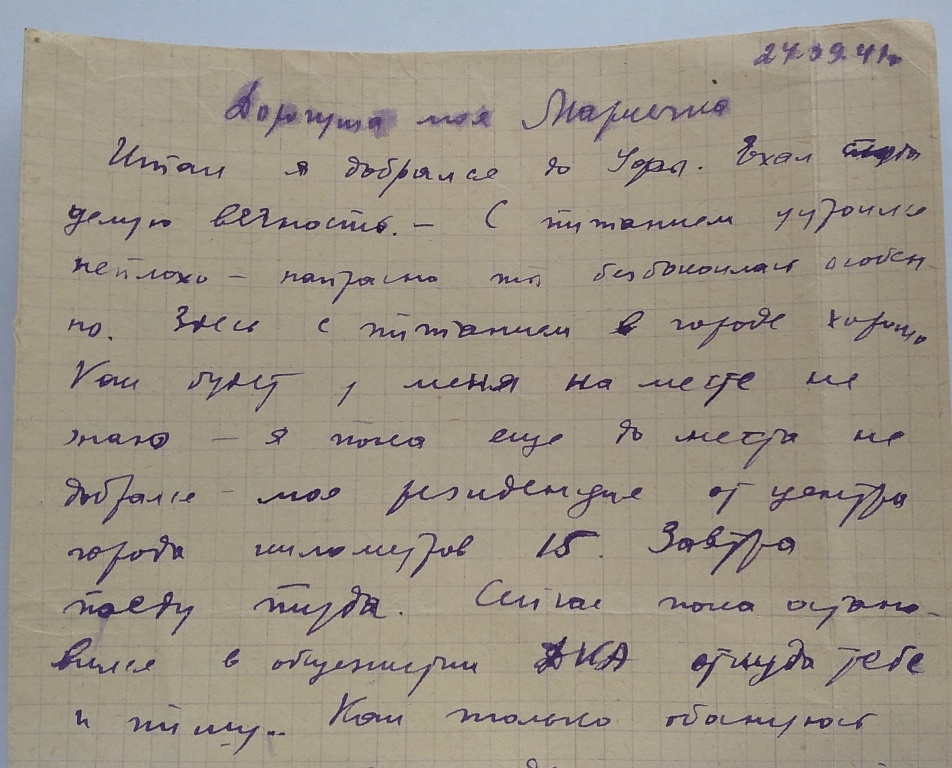 24.09.41г.
Дорогуша моя Марисечка
Итак я добрался до Уфы. Ехал
целую вечность. – С питанием устроился
неплохо – напрасно ты безпокоилась особен
но. Здесь с питанием в городе хорошо.
Как будет у меня на месте не
знаю – я пока еще до места не
добрался – моя резиденция от центра
города километров 15. Завтра
поеду туда. Сейчас пока остано-
вился в общежитии ДКА откуда тебе
и пишу.. Как только обоснуюсь